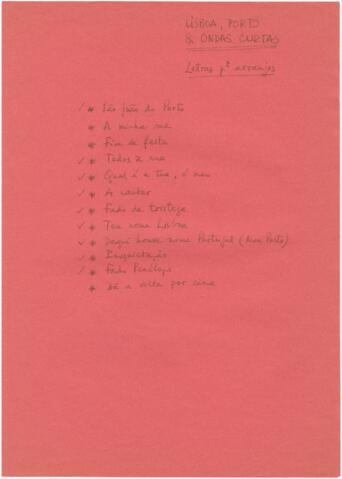 LISBOA, PORTO
& ONDAS CURTAS
Letras pª arranjos
✓ * São João do Porto
* A minha rua
* Fim de festa
✓ * Todos à rua
✓ * Qual é a tua, ó meu
✓ * A cantar
✓ * Fado da tristeza
✓ * Teu nome Lisboa
✓ * Daqui houve nome Portugal (Meu Porto)
✓ * Inquietação
✓ * Fado Penélope
* Dá a volta por cima